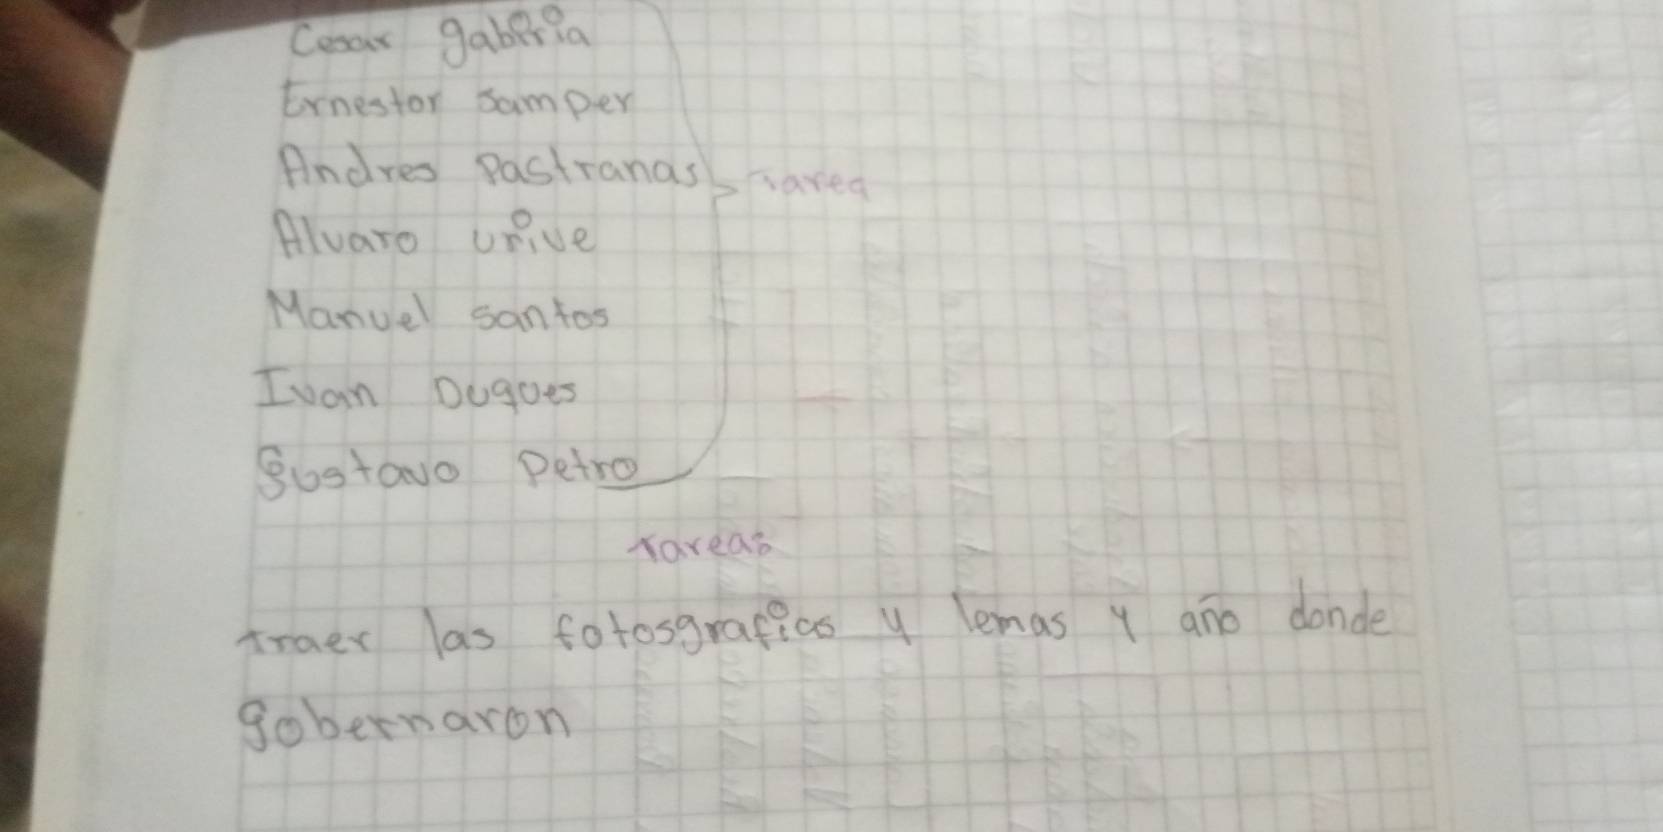 Cesar gabiria
Ernestor samper
Andres Pastranas Tarea
Alvaro urive
Manuel santos
Ivan Duques
Gustavo Petro
Tareas
traer las fotosgraficas y lemas y año donde
gobernaron